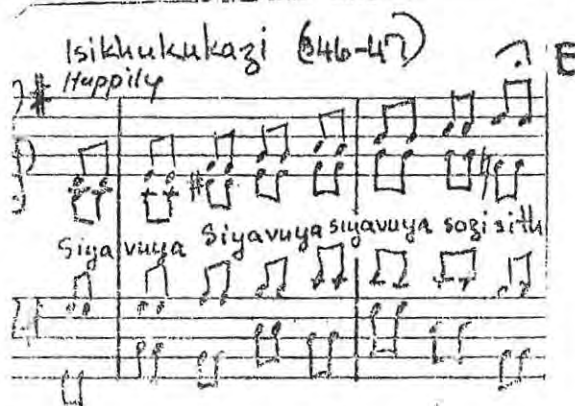 Isikhukukazi (646-47) E
Happily
Siyavuya Siyavuya siyavuya sozisith